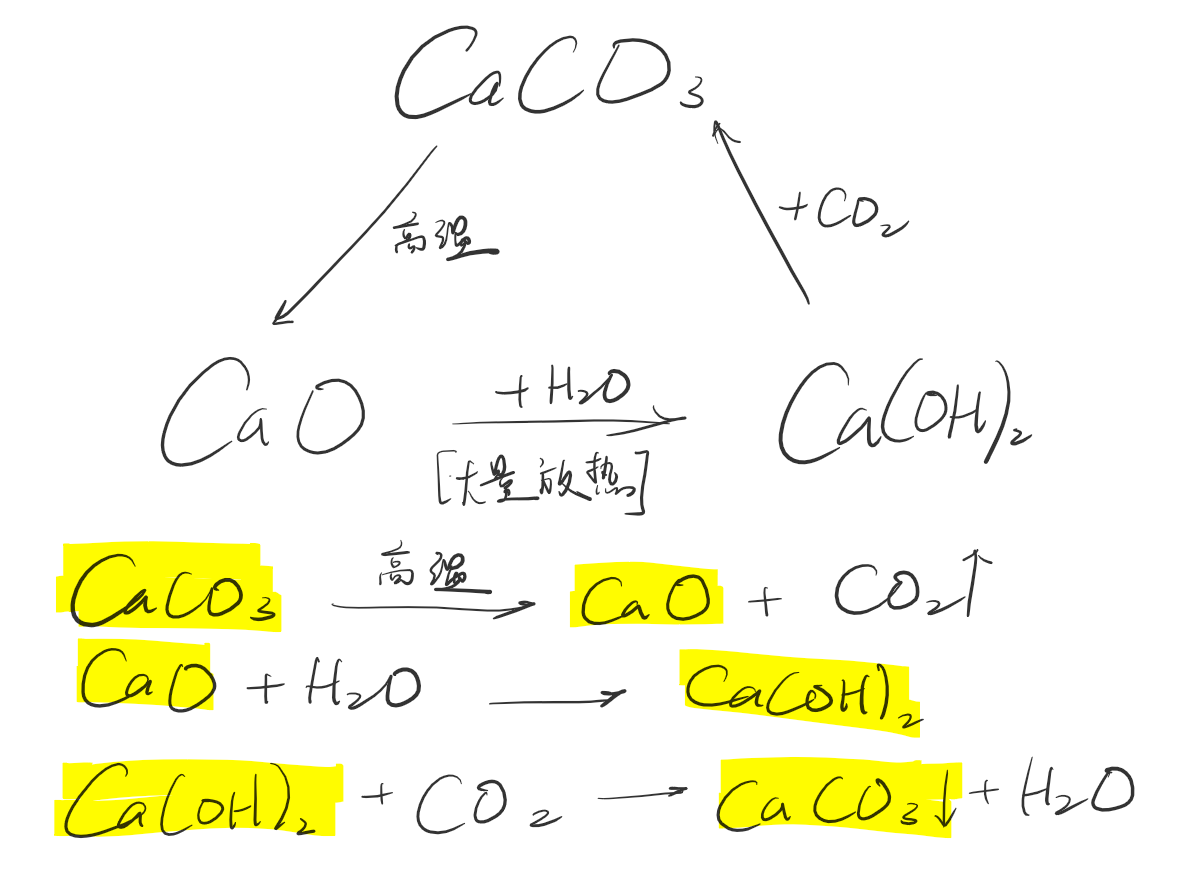 CaCO₃
高温
+CO₂
CaO
+H₂O
Ca(OH)₂
[大量放热]
CaCO₃ 高温 → CaO + CO₂↑
CaO + H₂O → Ca(OH)₂
Ca(OH)₂ + CO₂ → CaCO₃↓ + H₂O